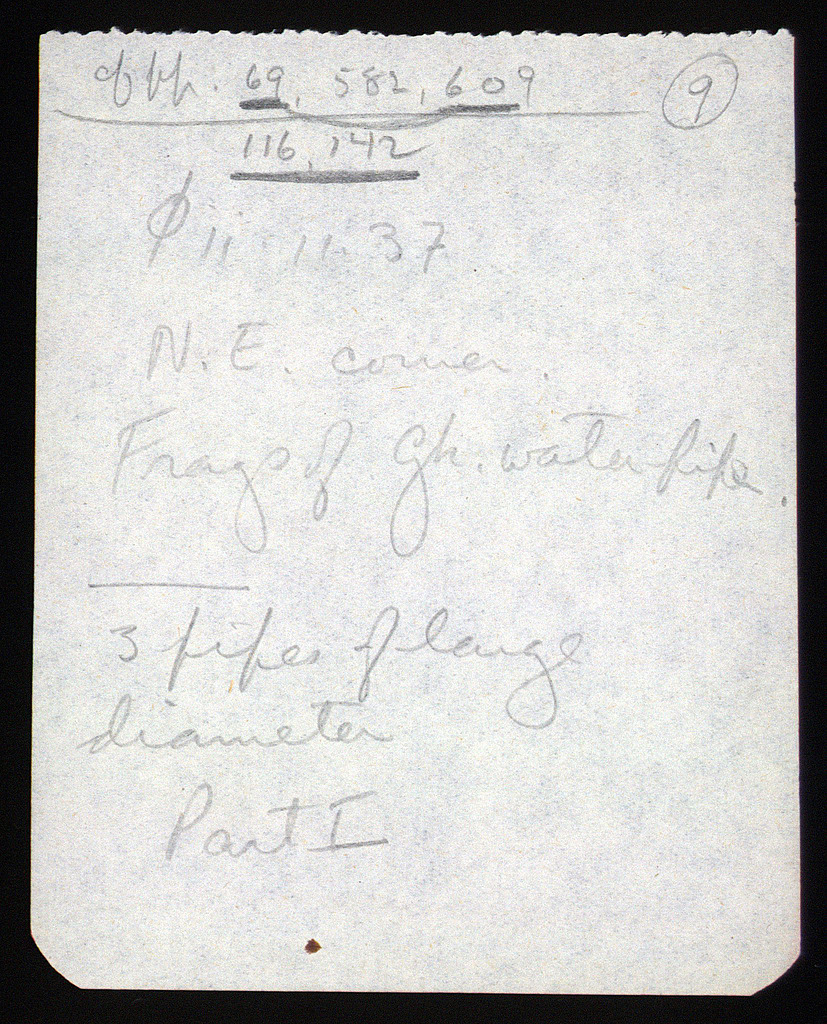 of pp. 69, 582, 609
9
116, 142
φ 11 11·37
N. E. corner.
Frags of Gk. water pipe.
3 pipes of large
diameter
Part I